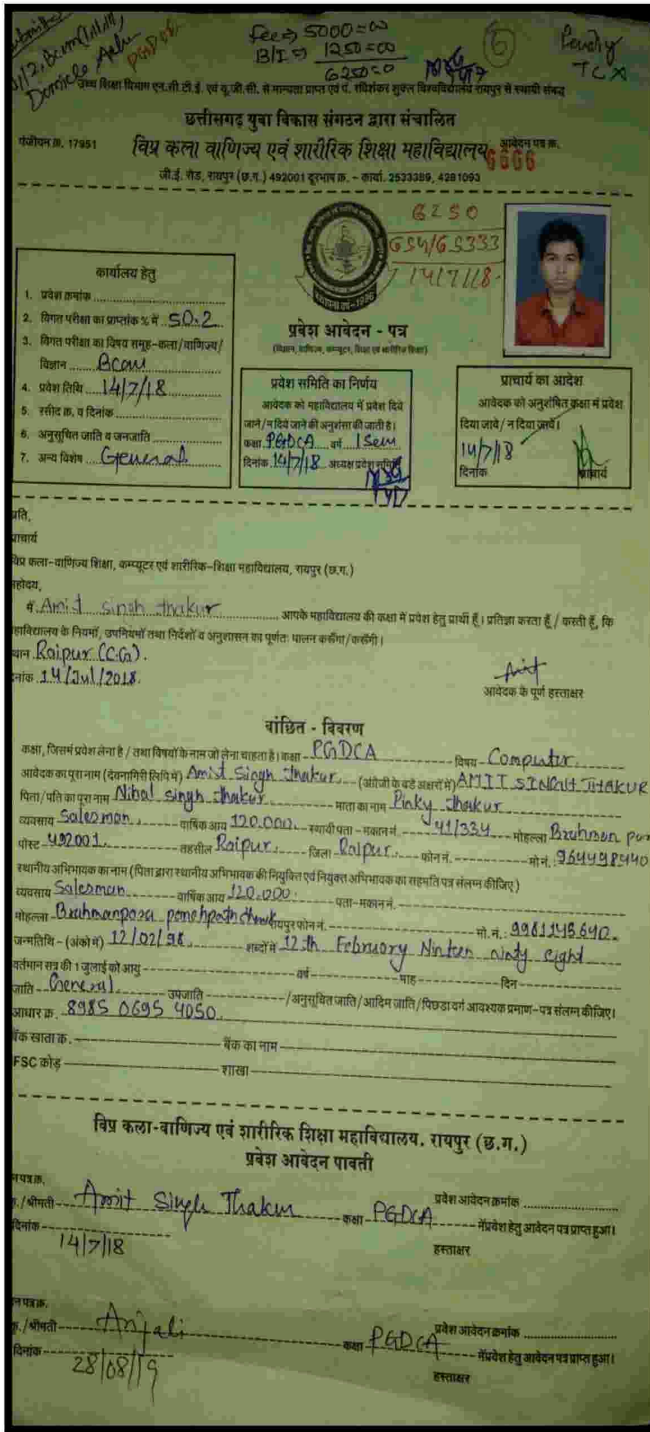 Fee → 5000=00
B/I → 1250=00
6250=0
6
Pendry
TCX
Domicile
PGD06
उच्च शिक्षा विभाग एन.सी.टी.ई. एवं यू.जी.सी. से मान्यता प्राप्त एवं पं. रविशंकर शुक्ल विश्वविद्यालय रायपुर से स्थायी संबद्ध
छत्तीसगढ़ युवा विकास संगठन द्वारा संचालित
पंजीयन क्र. 17951
विप्र कला वाणिज्य एवं शारीरिक शिक्षा महाविद्यालय
आवेदन पत्र क्र.
6666
जी.ई. रोड, रायपुर (छ.ग.) 492001 दूरभाष क्र. - कार्या. 2533389, 4281093
6250
GSY/GS333
14/7/18
स्थापना वर्ष-1996
कार्यालय हेतु
1. प्रवेश क्रमांक
2. विगत परीक्षा का प्राप्तांक % में 50.2
3. विगत परीक्षा का विषय समूह-कला/वाणिज्य/
विज्ञान Bcom
4. प्रवेश तिथि 14/7/18
5. रसीद क्र. व दिनांक
6. अनुसूचित जाति व जनजाति
7. अन्य विशेष General
प्रवेश आवेदन - पत्र
(विज्ञान, वाणिज्य, कम्प्यूटर, शिक्षा एवं शारीरिक शिक्षा)
प्रवेश समिति का निर्णय
आवेदक को महाविद्यालय में प्रवेश दिये
जाने/न दिये जाने की अनुशंसा की जाती है।
कक्षा PGDCA वर्ष I Sem
दिनांक 14/7/18 अध्यक्ष प्रवेश समिति
प्राचार्य का आदेश
आवेदक को अनुशंषित कक्षा में प्रवेश
दिया जावे / न दिया जावे।
14/7/18
दिनांक प्राचार्य
प्रति,
प्राचार्य
विप्र कला-वाणिज्य शिक्षा, कम्प्यूटर एवं शारीरिक-शिक्षा महाविद्यालय, रायपुर (छ.ग.)
महोदय,
मैं Amit singh thakur आपके महाविद्यालय की कक्षा में प्रवेश हेतु प्रार्थी हूँ। प्रतिज्ञा करता हूँ / करती हूँ, कि
हाविद्यालय के नियमों, उपनियमों तथा निर्देशों व अनुशासन का पूर्णतः पालन करूँगा/करूँगी।
थान Raipur (C.G).
नांक 14/Jul/2018.
Amit
आवेदक के पूर्ण हस्ताक्षर
वांछित - विवरण
कक्षा, जिसमें प्रवेश लेना है / तथा विषयों के नाम जो लेना चाहता है। कक्षा PGDCA विषय Computer
आवेदक का पूरा नाम (देवनागिरी लिपि में) Amit Singh Thakur (अंग्रेजी के बड़े अक्षरों में) AMIT SINGH THAKUR
पिता/पति का पूरा नाम Nihal singh thakur माता का नाम Pinky thakur
व्यवसाय Salesman वार्षिक आय 120.000 स्थायी पता - मकान नं. 41/334 मोहल्ला Brahman par
पोस्ट 492001 तहसील Raipur जिला Raipur फोन नं. मो.नं. 964498440
स्थानीय अभिभावक का नाम (पिता द्वारा स्थानीय अभिभावक की नियुक्ति एवं नियुक्त अभिभावक का सहमति पत्र संलग्न कीजिए)
व्यवसाय Salesman वार्षिक आय 120.000 पता-मकान नं.
मोहल्ला Brahmanpara panchpath chowk रायपुर फोन नं. मो. नं. 9981145640.
जन्मतिथि - (अंको में) 12/02/98 शब्दों में 12th February Ninteen ninty eight
वर्तमान सत्र की 1 जुलाई को आयु वर्ष माह दिन
जाति General उपजाति /अनुसूचित जाति/आदिम जाति/पिछडा वर्ग आवश्यक प्रमाण-पत्र संलग्न कीजिए।
आधार क्र. 8985 0695 4050
बैंक खाता क्र. बैंक का नाम
FSC कोड़ शाखा
विप्र कला-वाणिज्य एवं शारीरिक शिक्षा महाविद्यालय. रायपुर (छ.ग.)
प्रवेश आवेदन पावती
न पत्र क्र. प्रवेश आवेदन क्रमांक
कु./श्रीमती Amit Singh Thakur कक्षा PGDCA में प्रवेश हेतु आवेदन पत्र प्राप्त हुआ।
दिनांक 14/7/18
हस्ताक्षर
न पत्र क्र. प्रवेश आवेदन क्रमांक
कु./श्रीमती Anjali कक्षा PGDCA में प्रवेश हेतु आवेदन पत्र प्राप्त हुआ।
दिनांक 28/08/19
हस्ताक्षर